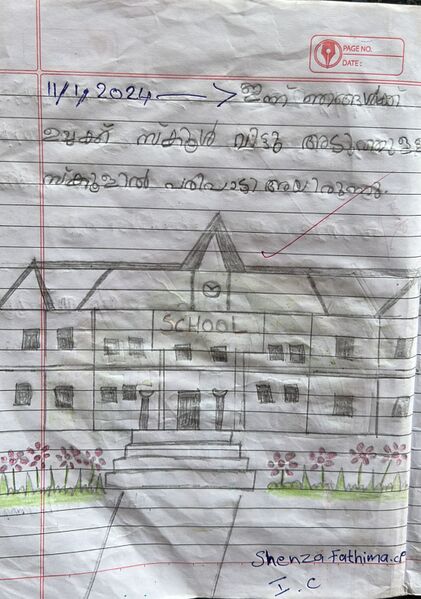 PAGE NO.
DATE:
11/1/2024 ഇന്ന് ഞങ്ങൾക്ക്
ഉച്ചക്ക് സ്കൂൾ വിട്ടു അടുത്തുള്ള
സ്കൂളിൽ പരിപാടി അയിരുന്നു.
SCHOOL
Shenza Fathima.cp
I.C